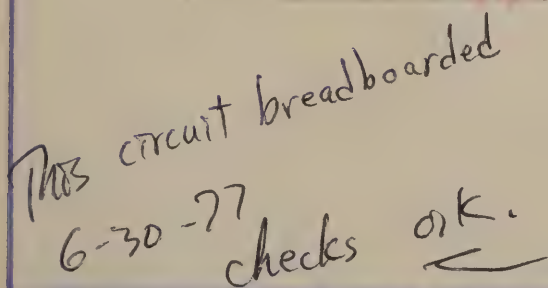 This circuit breadboarded
6-30-77
checks o,k.